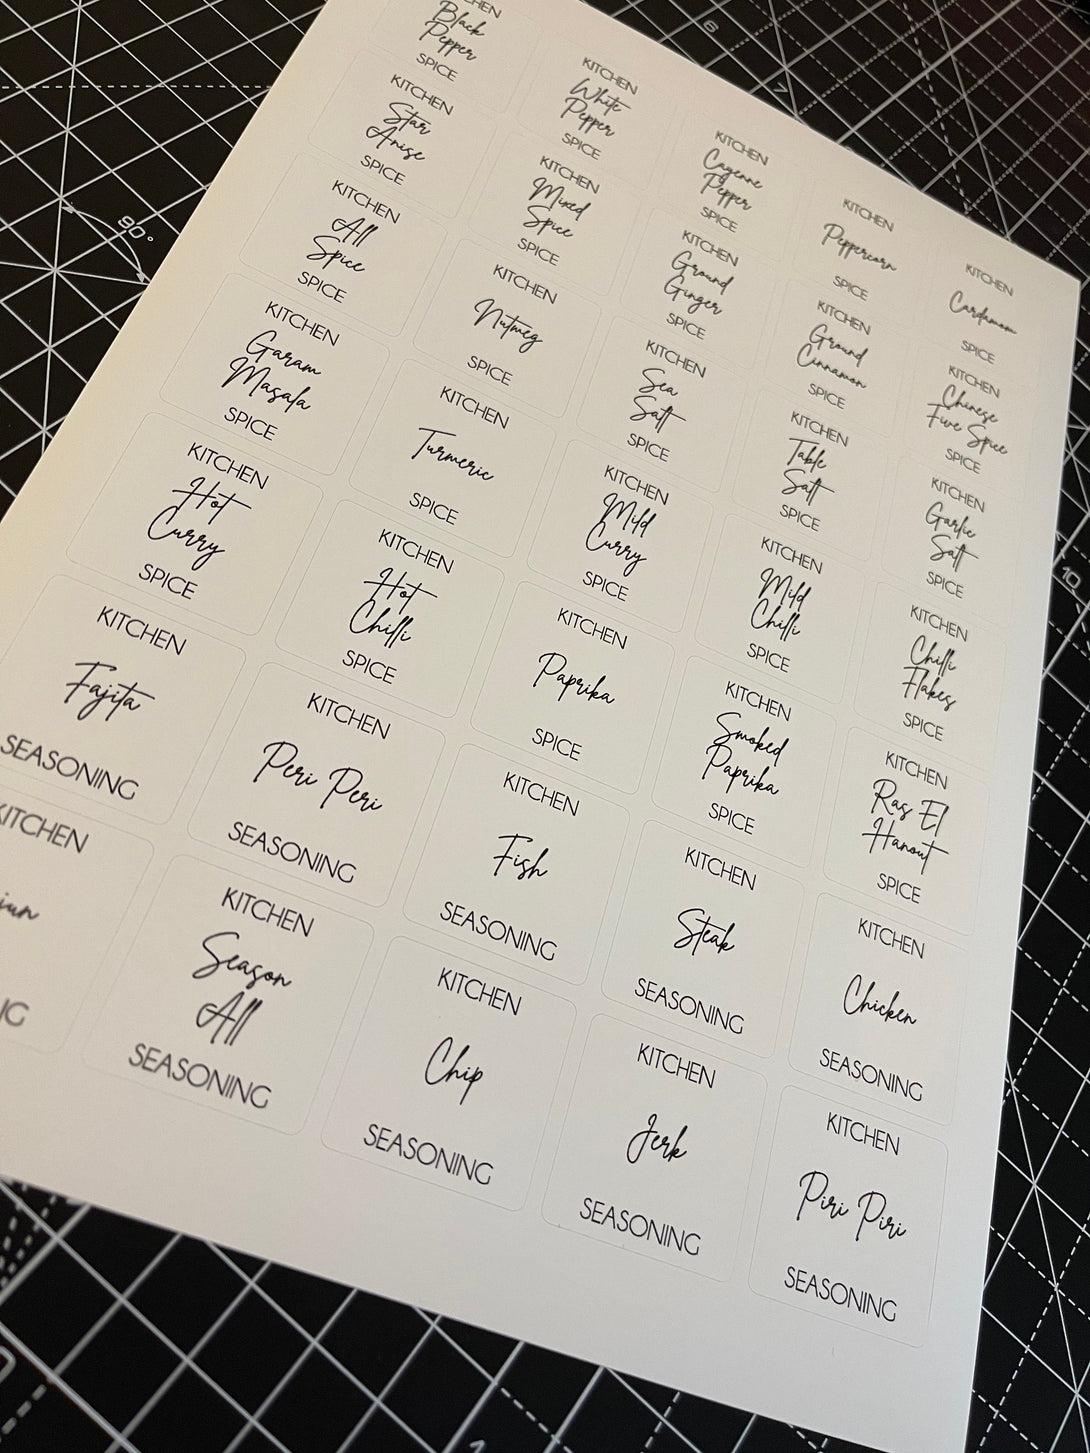 Black
Pepper
SPICE
KITCHEN
White
Pepper
SPICE
KITCHEN
Cayenne
Pepper
SPICE
KITCHEN
Peppercorn
SPICE
KITCHEN
Cardamom
SPICE
KITCHEN
Star
Anise
SPICE
KITCHEN
Mixed
Spice
SPICE
KITCHEN
Ground
Ginger
SPICE
KITCHEN
Ground
Cinnamon
SPICE
KITCHEN
Chinese
Five Spice
SPICE
KITCHEN
All
Spice
SPICE
KITCHEN
Nutmeg
SPICE
KITCHEN
Sea
Salt
SPICE
KITCHEN
Table
Salt
SPICE
KITCHEN
Garlic
Salt
SPICE
KITCHEN
Garam
Masala
SPICE
KITCHEN
Turmeric
SPICE
KITCHEN
Mild
Curry
SPICE
KITCHEN
Mild
Chilli
SPICE
KITCHEN
Chilli
Flakes
SPICE
KITCHEN
Hot
Curry
SPICE
KITCHEN
Hot
Chilli
SPICE
KITCHEN
Paprika
SPICE
KITCHEN
Smoked
Paprika
SPICE
KITCHEN
Ras El
Hanout
SPICE
KITCHEN
Fajita
SEASONING
KITCHEN
Peri Peri
SEASONING
KITCHEN
Fish
SEASONING
KITCHEN
Steak
SEASONING
KITCHEN
Chicken
SEASONING
KITCHEN
KITCHEN
Season
All
SEASONING
KITCHEN
Chip
SEASONING
KITCHEN
Jerk
SEASONING
KITCHEN
Piri Piri
SEASONING
10